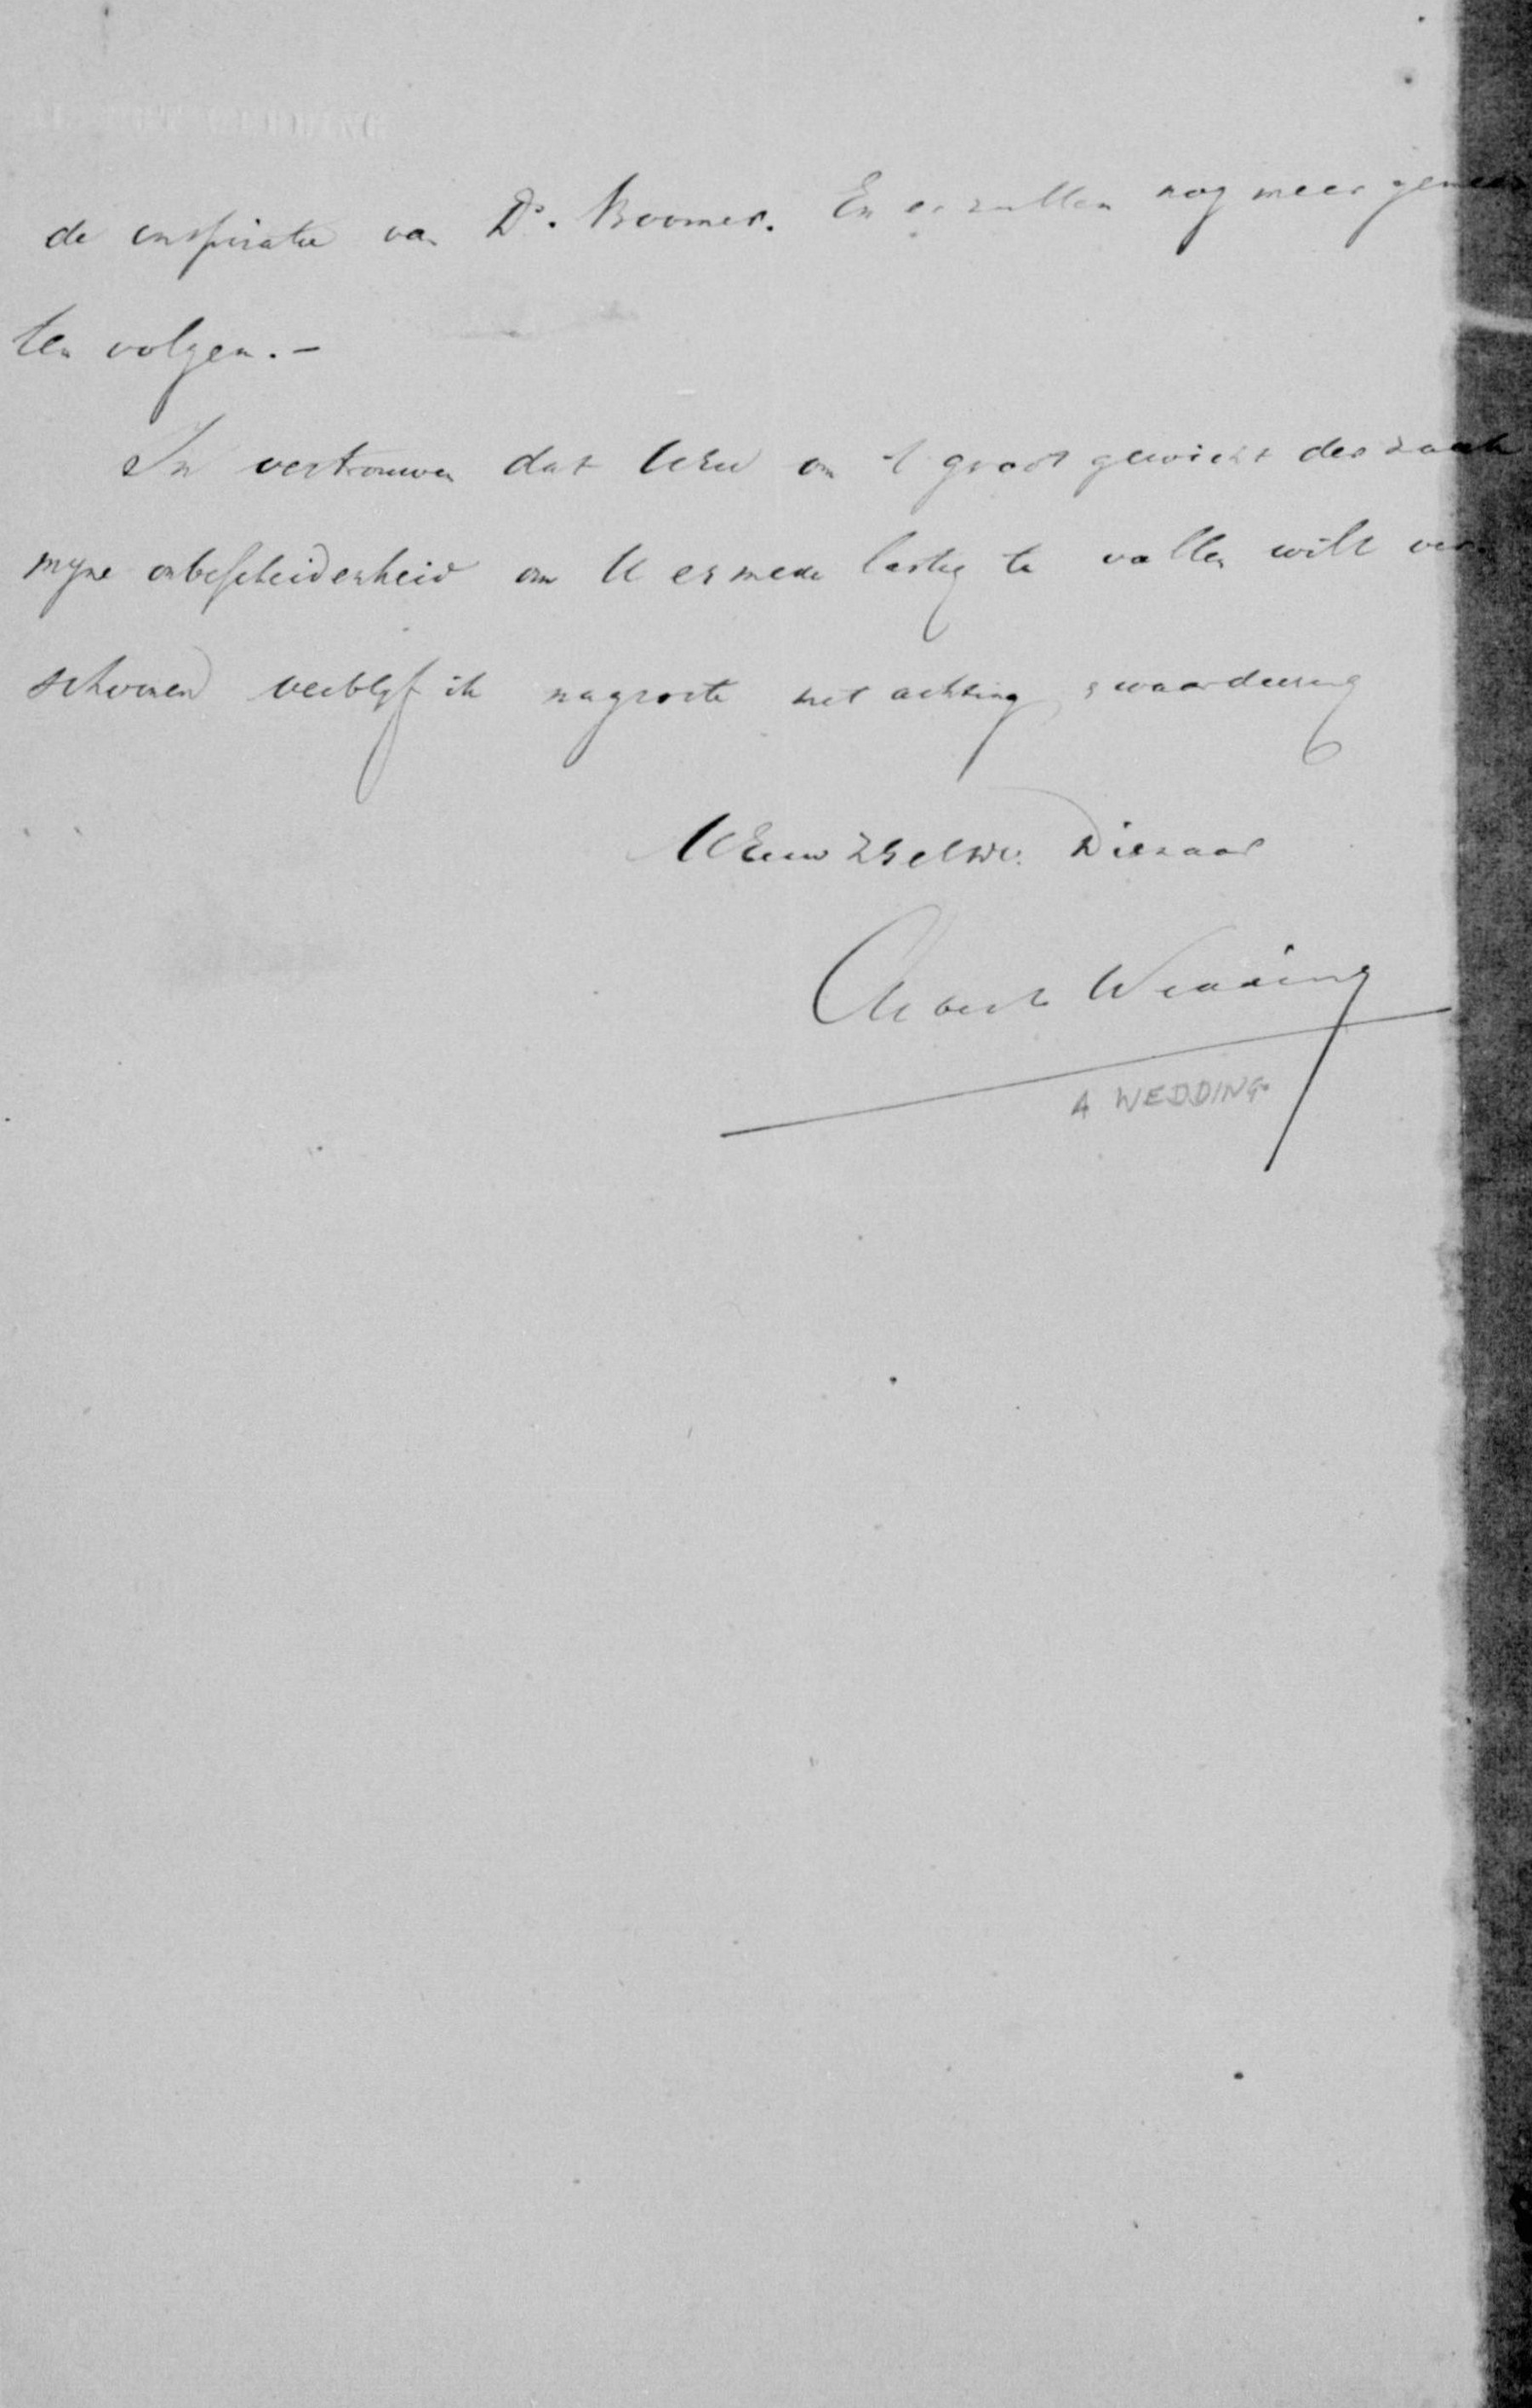 de inspiratie van Ds. Boomer. En er zullen nog meer gemeen
ten volgen. -
In vertrouwen dat UEw om 't groot gewicht der zaak
myne onbescheidenheid om U er mede lastig te vallen wilt ver-
schoonen verblyf ik na groete met achting & waardeering
UEw Dienaar
Albert Wedding
A WEDDING